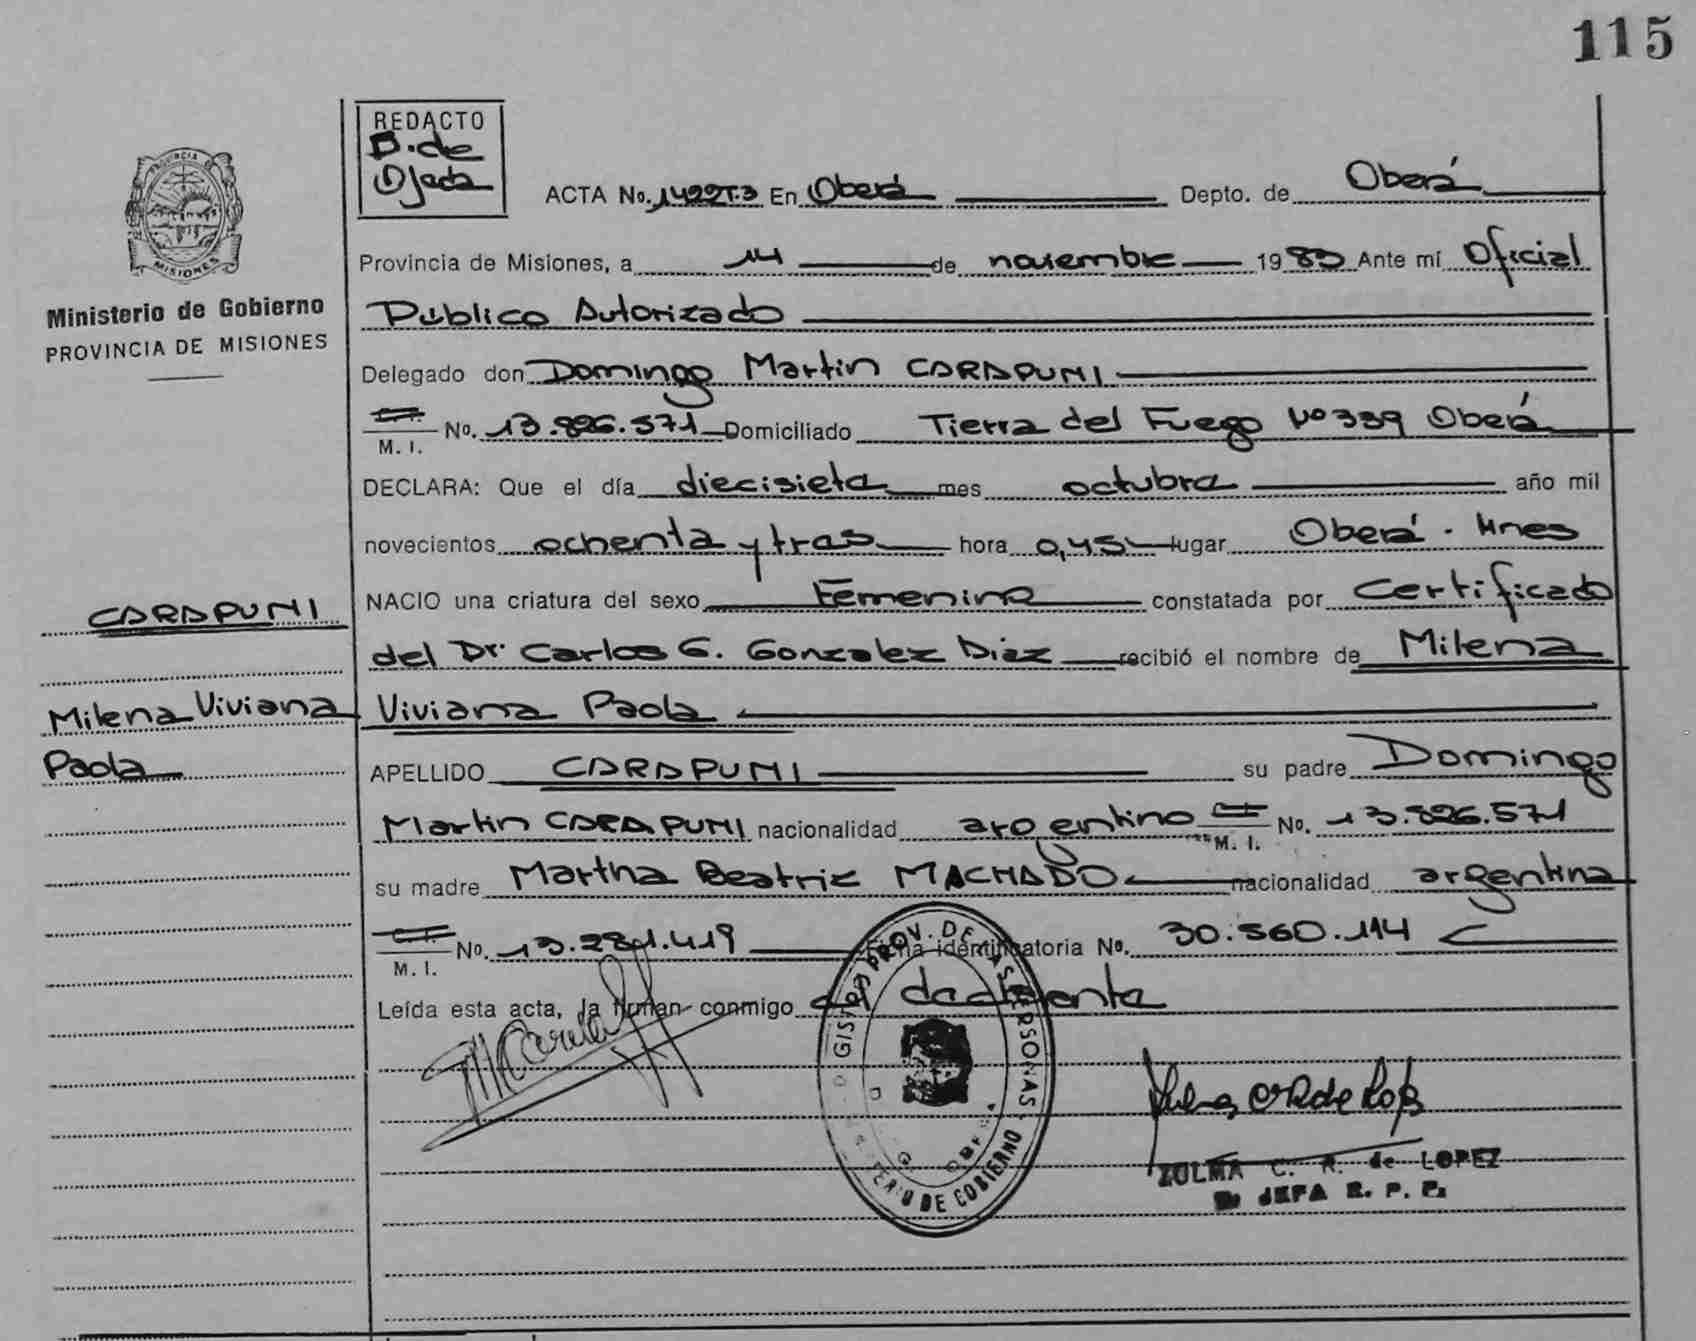 115
REDACTO
B. de
Ojeda
ACTA No. 1422T.3 En Oberá Depto. de Oberá
Provincia de Misiones, a 14 de noviembre 1983 Ante mí Oficial
Público Autorizado
Delegado don Domingo Martin CARAPUMI
C.I. M. I. No. 13.826.571 Domiciliado Tierra del Fuego Nº 339 Oberá
DECLARA: Que el día diecisiete mes octubre año mil
novecientos ochenta y tres hora 0,45 lugar Oberá - Mnes
NACIO una criatura del sexo Femenino constatada por Certificado
del Dr. Carlos G. Gonzalez Diaz recibió el nombre de Milena
Viviana Paola
APELLIDO CARAPUMI su padre Domingo
Martin CARAPUMI nacionalidad argentino C.I. M. I. No. 13.826.571
su madre Martha Beatriz MACHADO nacionalidad argentina
C.I. M. I. No. 13.281.419 Ficha identificatoria No. 30.560.114
Leída esta acta, la firman conmigo el declarante
PROVINCIA DE
MISIONES
Ministerio de Gobierno
PROVINCIA DE MISIONES
CARAPUMI
Milena Viviana
Paola
PROV. DE LAS PERSONAS
DE GOBIERNO
ZULMA C. R. de LOPEZ
JEFA R. P. P.